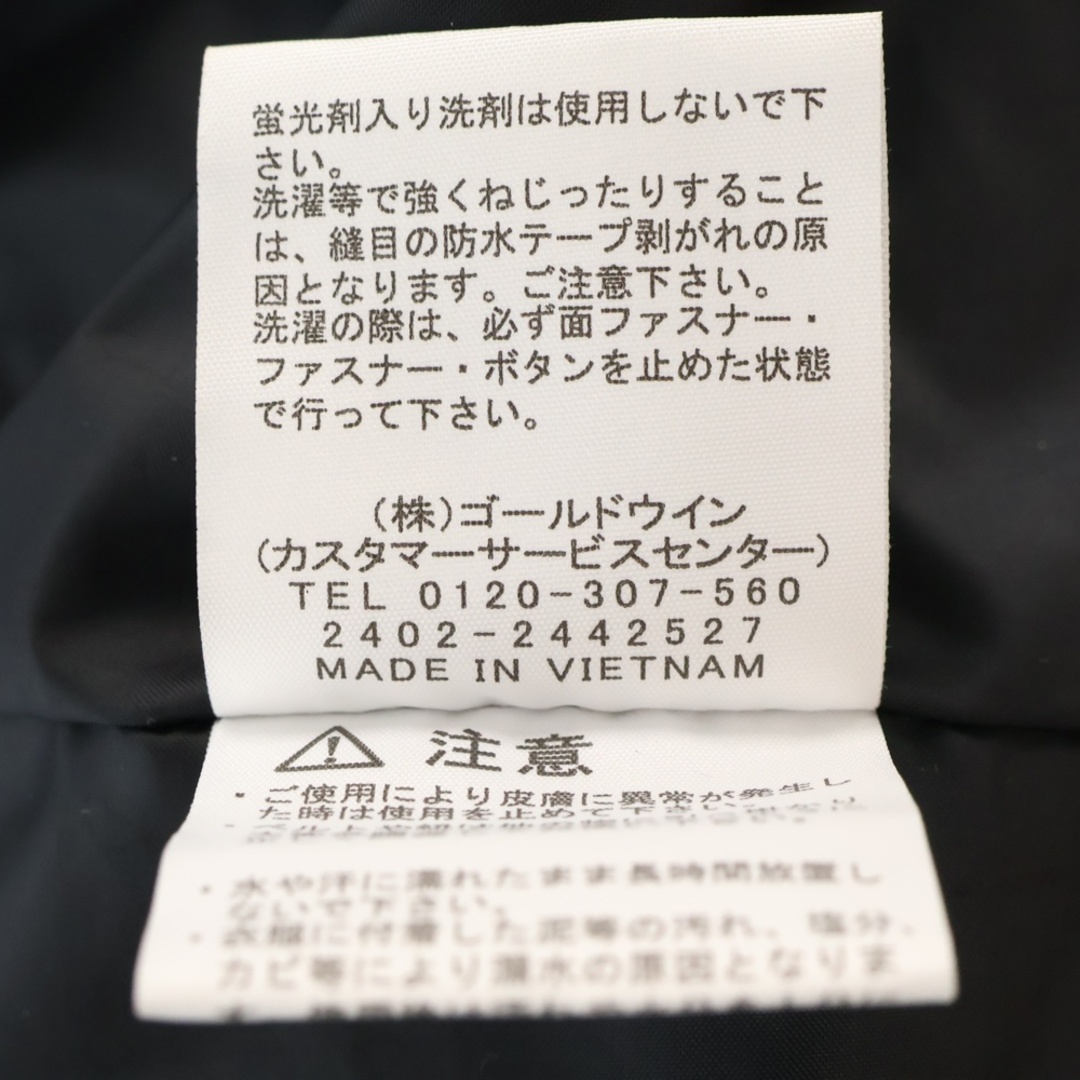 蛍光剤入り洗剤は使用しないで下
さい。
洗濯等で強くねじったりすること
は、縫目の防水テープ剥がれの原
因となります。ご注意下さい。
洗濯の際は、必ず面ファスナー・
ファスナー・ボタンを止めた状態
で行って下さい。
(株)ゴールドウイン
(カスタマーサービスセンター)
TEL 0120-307-560
2402-2442527
MADE IN VIETNAM
注意
・ご使用により皮膚に異常が発生し
た時は使用を止めて下さい
・水や汗に濡れたまま長時間放置し
ないで下さい。
・衣服に付着した泥等の汚れ、塩分、
カビ等により漏水の原因となりま